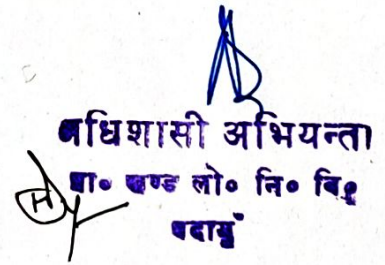 अधिशासी अभियन्ता
प्रा० खण्ड लो० नि० वि०
बदायुँ